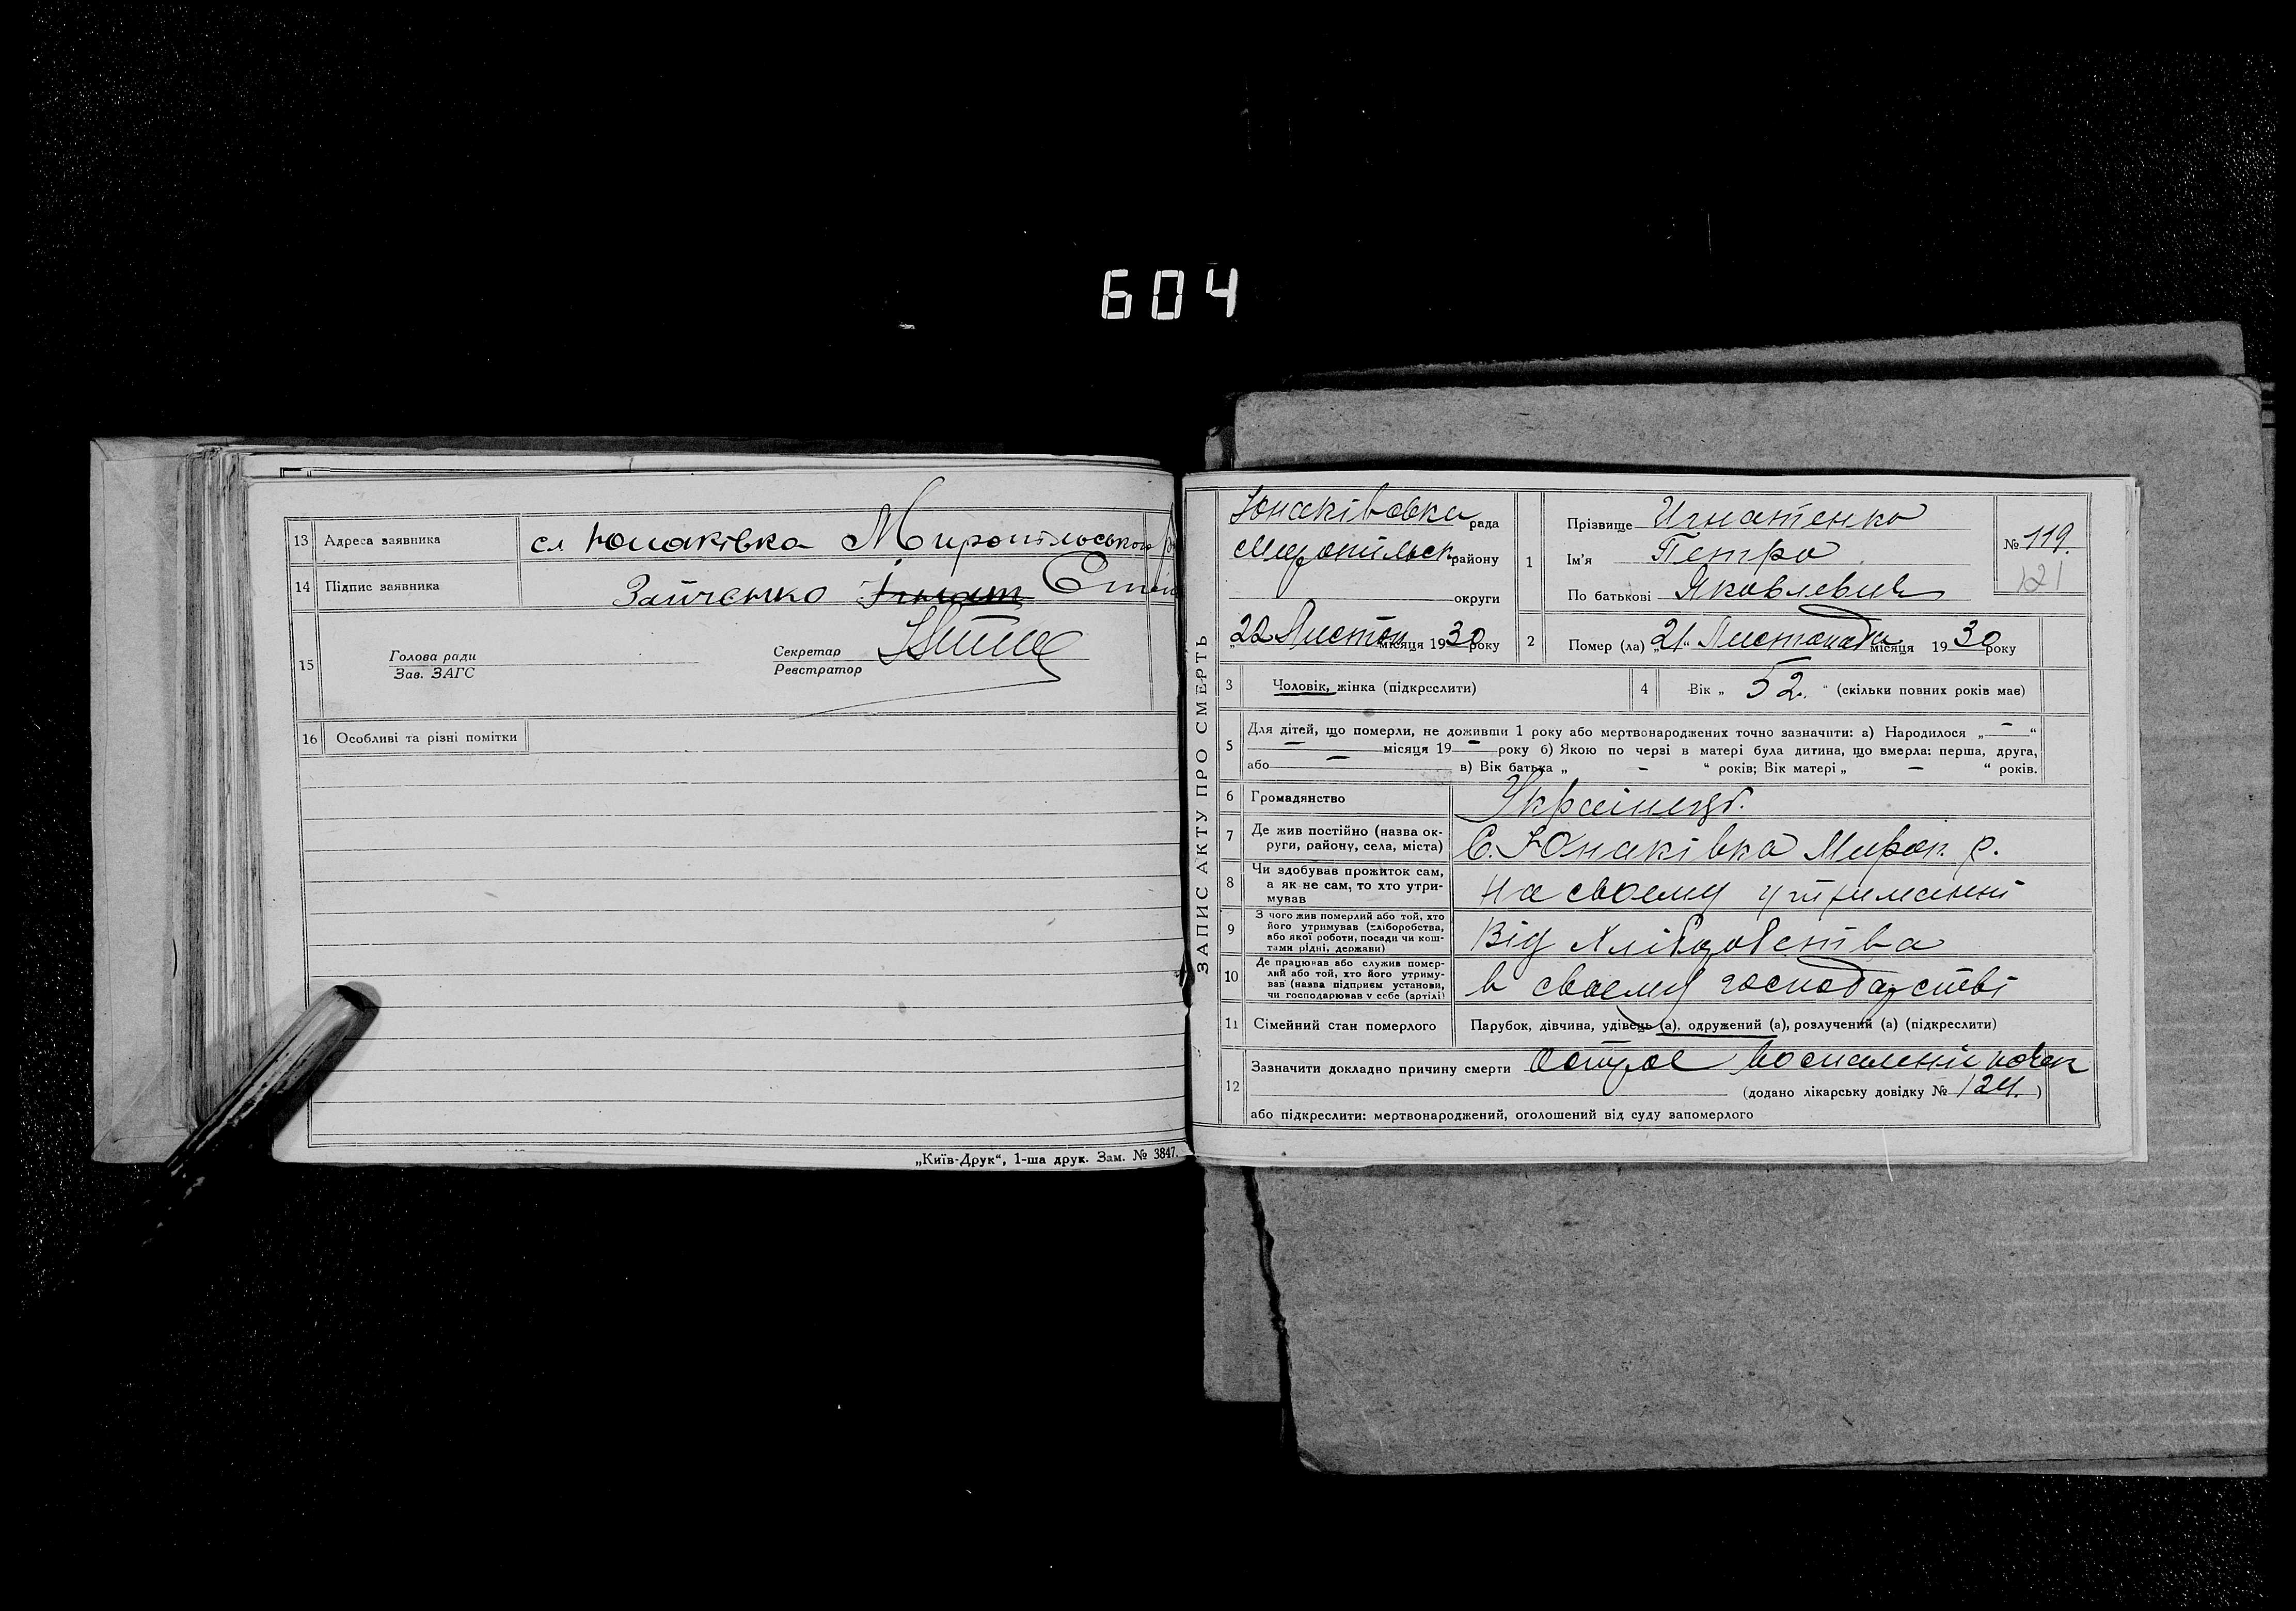 604
13 Адреса заявника сл Юнаківка Миропільського
14 Підпис заявника Зайченко Ігнат
15 Голова ради
Зав. ЗАГС
Секретар
Реєстратор
16 Особливі та різні помітки
„Київ-Друк“, 1-ша друк. Зам. № 3847.
ЗАПИС АКТУ ПРО СМЕРТЬ
Юнаківовка рада
Миропільск району
округи
„22 Листоп місяця 1930 року
1 Прізвище Игнатенко
Ім'я Петро
По батькові Яковлевич
№ 119.
121
2 Помер (ла) „21“ Листопада місяця 1930 року
3 Чоловік, жінка (підкреслити)
4 Вік „ 52. “ (скільки повних років має)
5 Для дітей, що померли, не доживши 1 року або мертвонароджених точно зазначити: а) Народилося „ — “
— місяця 19 — року б) Якою по черзі в матері була дитина, що вмерла: перша, друга,
або — в) Вік батька „ - “ років; Вік матері „ — “ років.
6 Громадянство Українець.
7 Де жив постійно (назва ок-
руги, району, села, міста) С. Юнаківка Мироп. р.
8 Чи здобував прожиток сам,
а як не сам, то хто утри-
мував
на своему утриманні
9 З чого жив померлий або той, хто
його утримував (хліборобства,
або якої роботи, посади чи кош-
тами рідні, держави)
Від
10 Де працював або служив помер-
лий або той, хто його утриму-
вав (назва підприєм установи,
чи господарював у себе (артілі)
в своему господарстві
11 Сімейний стан померлого Парубок, дівчина, удівець (а), одружений (а), розлучений (а) (підкреслити)
12 Зазначити докладно причину смерти Острое воспаление почек
(додано лікарську довідку № 124. )
або підкреслити: мертвонароджений, оголошений від суду запомерлого